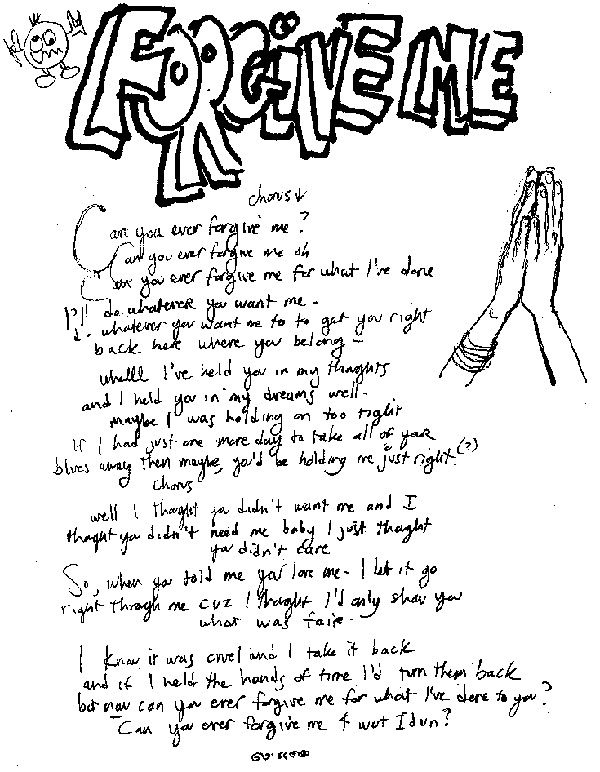 FORGIVE ME
chorus ↓
Can you ever forgive me?
Can you ever forgive me oh
Can you ever forgive me for what I've done
I'll do whatever you want me -
whatever you want me to to get you right
back here where you belong -
whelll I've held you in my thoghts
and I held you in my dreams well -
maybe I was holding on too tight
If I had just one more day to take all of your
blues away then maybe you'd be holding me just right (?)
chorus
well I thoght ya didn't want me and I
thoght ya didn't need me baby I just thoght
ya didn't care
So, when you told me your love me - I let it go
right through me cuz I thoght I'd only show you
what was fair -
I know it was cruel and I take it back
and if I held the hands of time I'd turn them back
but now can you ever forgive me for what I've done to you?
Can you ever forgive me 4 wut I dun?